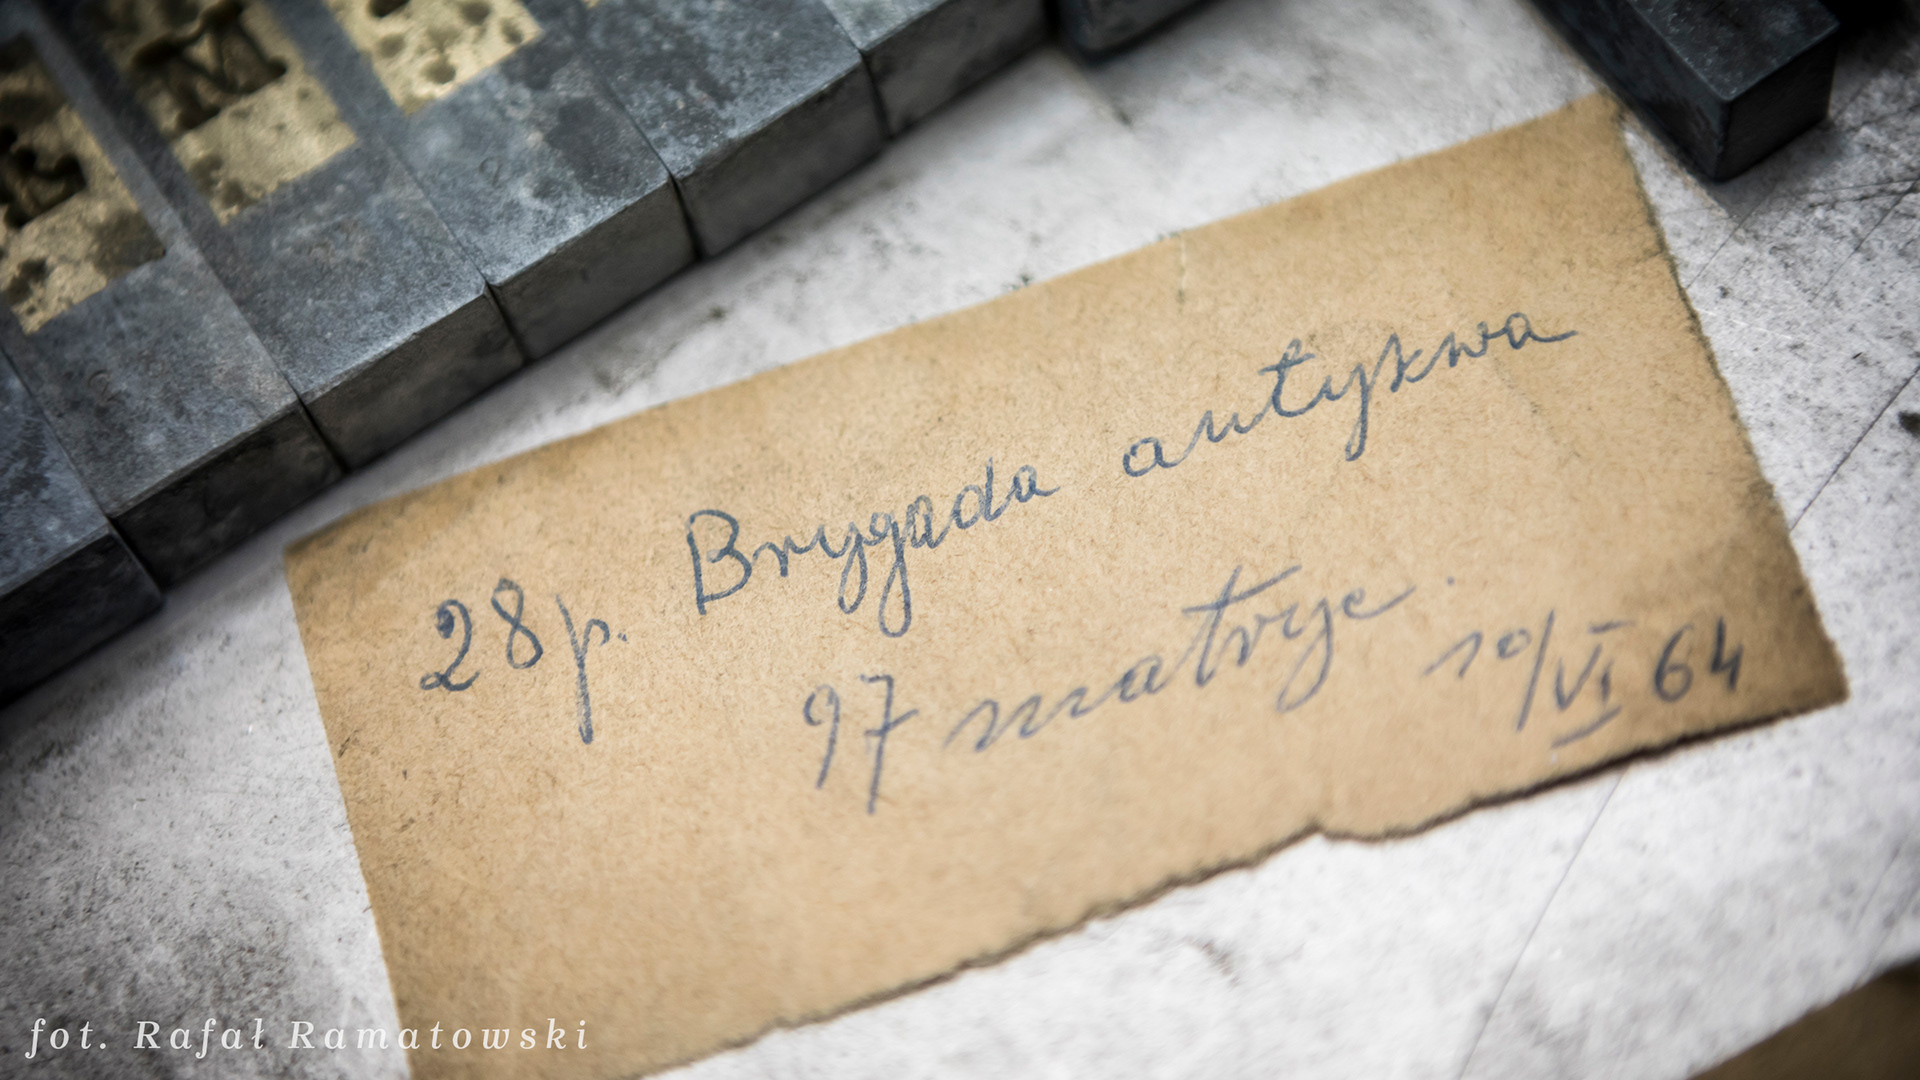 M
28p. Brygada antykwa
97 matryc.
10/VI 64
fot. Rafał Ramatowski